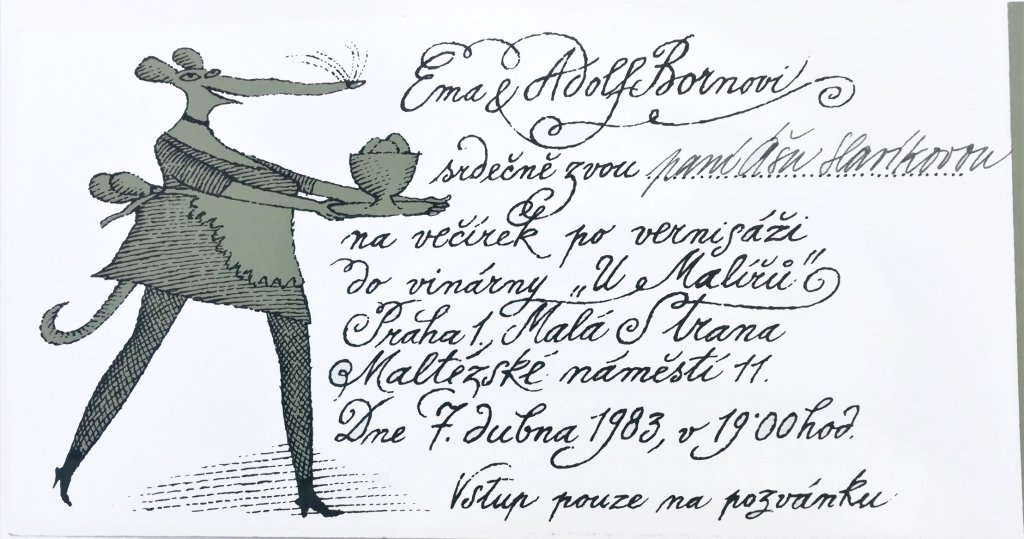 Ema & Adolf Bornovi
srdečně zvou paní Ášu Slavíkovou
na večírek po vernisáži
do vinárny „U Malířů“
Praha 1., Malá Strana
Maltézské náměstí 11.
Dne 7. dubna 1983, v 19·00 hod.
Vstup pouze na pozvánku